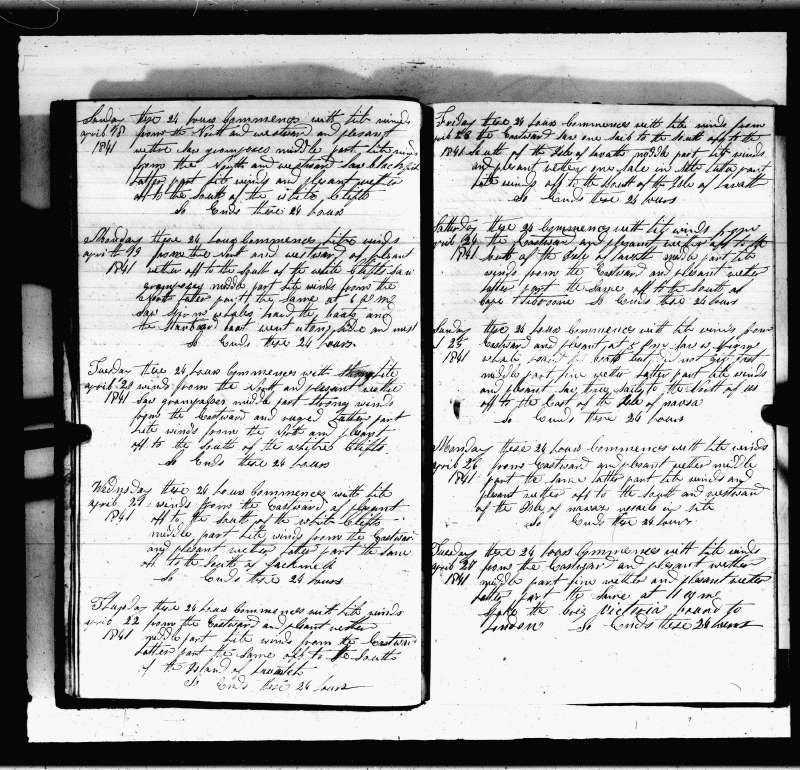 Sunday these 24 hours Commences with lite winds
april 18 from the North and westward and plesant
1841 wether Saw grampuses middle part lite winds
from the North and westward Saw blackfish
Latter part lite winds and plesant wether
off to the South of the
So Ends these 24 hours
Monday these 24 hours Commences lite winds
april 19 from the North and westward and plesant
1841 wether off to the South of the white Clifts Saw
grampuses middle part lite winds from the
North latter part the same at 6 a m
Saw Sperm whales lowd the boats and
the starboard boat went along side and mist
So Ends these 24 hours
Tuesday these 24 hours Commences with lite
april 20 winds from the North and plesant wether
1841 Saw grampuses middle part strong winds
from the Eastward and ruged Latter part
lite winds from the North and plesant
off to the South of the white Clifts
So Ends these 24 hours
Wednsday these 24 hours Commences with lite
april 21 winds from the Eastward and plesant
1841 off to the South of the white Clifts
middle part lite winds from the Eastward
and plesant wether latter part the same
off to the South of Jackmell
So Ends these 24 hours
Thursday these 24 hours Commences with lite winds
april 22 from the Eastward and plesant wether
1841 middle part lite winds from the Eastward
Latter part the same off to the South
of the Island of
So Ends these 24 hours
Friday these 24 hours Commences with lite winds from
april 23 the Eastward Saw one Sail to the South off to the
1841 South of the Ile of middle part lite winds
and plesant wether one Sale in Site Latter part
lite winds off to the South of the Ile of
So Ends these 24 hours
Saturday these 24 Commences with lite winds from
april 24 the Eastward and plesant wether off to the
1841 South of the Ile of middle part lite
winds from the Eastward and plesant wether
latter part the Same off to the South of
Cape So Ends these 24 hours
Sunday these 24 hours Commences with lite winds from
25 Eastward and plesant at 5 Saw a Sperm
1841 whale lowd boats but did not git fast
middle part fine wether Latter part lite winds
and plesant Saw three Sails to the South of us
off to the East of the Ile of navasa
So Ends these 24 hours
Monday these 24 hours Commences with lite winds
april 26 from Eastward and plesant wether middle
1841 part the Same latter part lite winds and
plesant wether off to the South and westward
of the Ile of navasa vesails in Site
So Ends these 24 hours
Tuesday these 24 hours Commences with lite winds
april 27 from the Eastward and plesant wether
1841 middle part fine wether and plesant wether
Latter part the same at 11 a m
Spoke the brig Victoria bound to
London So Ends these 24 hours